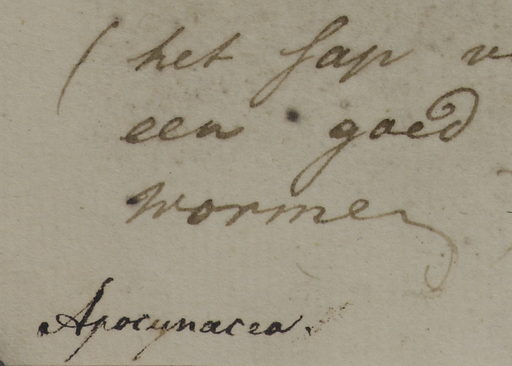 ( het sap v
een goed
wormen
Apocynacea.